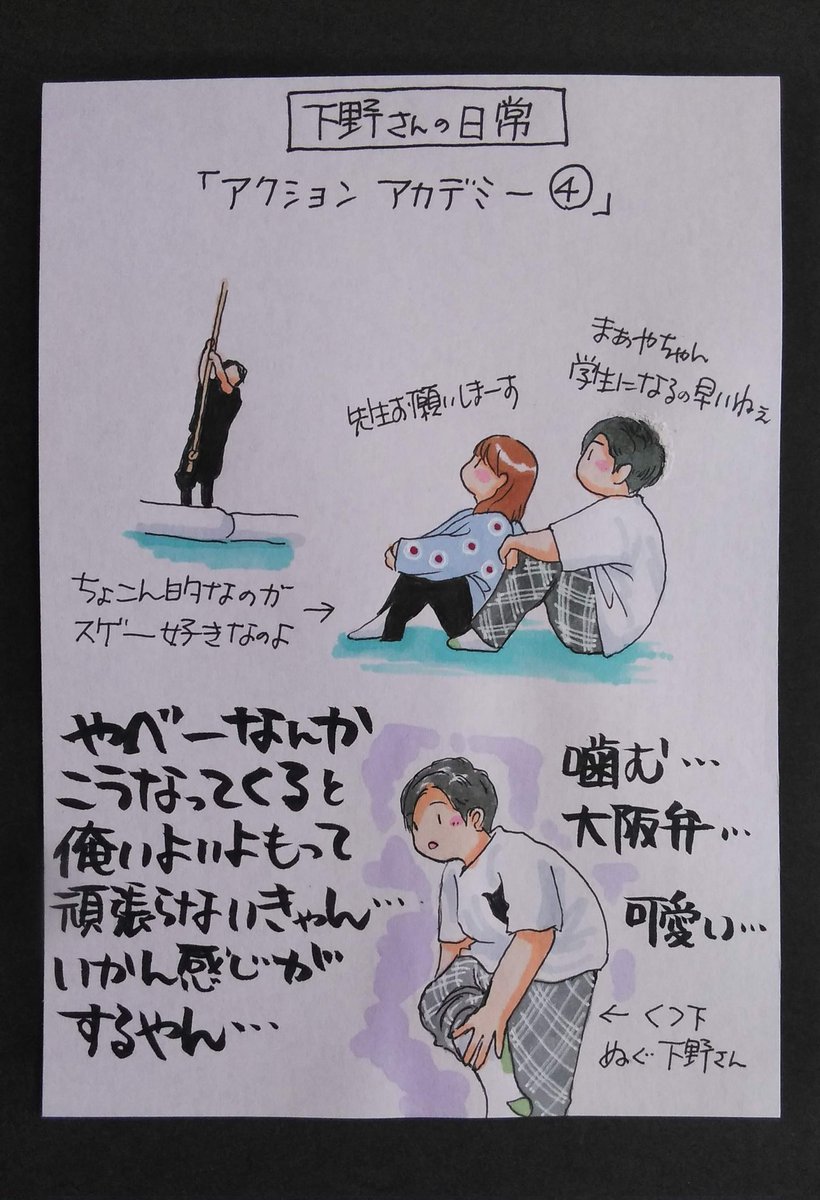 下野さんの日常
「アクション アカデミー④」
まあやちゃん
学生になるの早いねぇ
先生お願いしまーす
ちょこん的なのが
スゲー好きなのよ →
やべーなんか
こうなってくると
俺いよいよもって
頑張らないきゃん…
いかん感じが
するやん…
噛む…
大阪弁…
可愛い…
← くつ下
ぬぐ下野さん